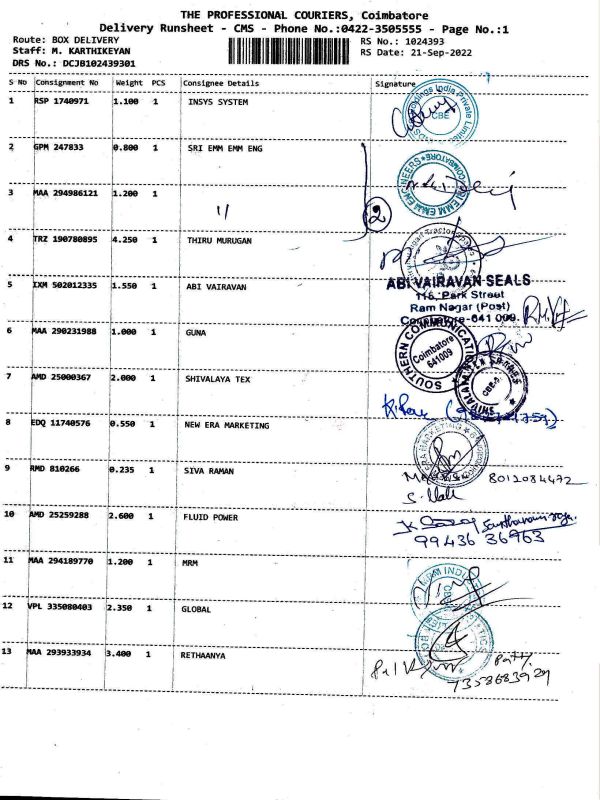 THE PROFESSIONAL COURIERS, Coimbatore
Delivery Runsheet - CMS - Phone No.:0422-3505555 - Page No.:1
Route: BOX DELIVERY
RS No.: 1024393
Staff: M. KARTHIKEYAN
RS Date: 21-Sep-2022
DRS No.: DCJB102439301
S No Consignment No Weight PCS Consignee Details Signature
1 RSP 1740971 1.100 1 INSYS SYSTEM
CBE
2 GPM 247833 0.800 1 SRI EMM EMM ENG
3 MAA 294986121 1.200 1 "
2
4 TRZ 190780895 4.250 1 THIRU MURUGAN
5 IXM 502012335 1.550 1 ABI VAIRAVAN
ABI VAIRAVAN SEALS
116, Park Street
Ram Nagar (Post)
Coimbatore-641 009.
6 MAA 290231988 1.000 1 GUNA
SOUTHERN COMMUNICATION
Coimbatore
641009
7 AMD 25000367 2.000 1 SHIVALAYA TEX
8 EDQ 11740576 0.550 1 NEW ERA MARKETING
9 RMD 810266 0.235 1 SIVA RAMAN
8012084472
10 AMD 25259288 2.600 1 FLUID POWER
99436 36963
11 MAA 294189770 1.200 1 MRM
12 VPL 335080403 2.350 1 GLOBAL
13 MAA 293933934 3.400 1 RETHAANYA
7358683929